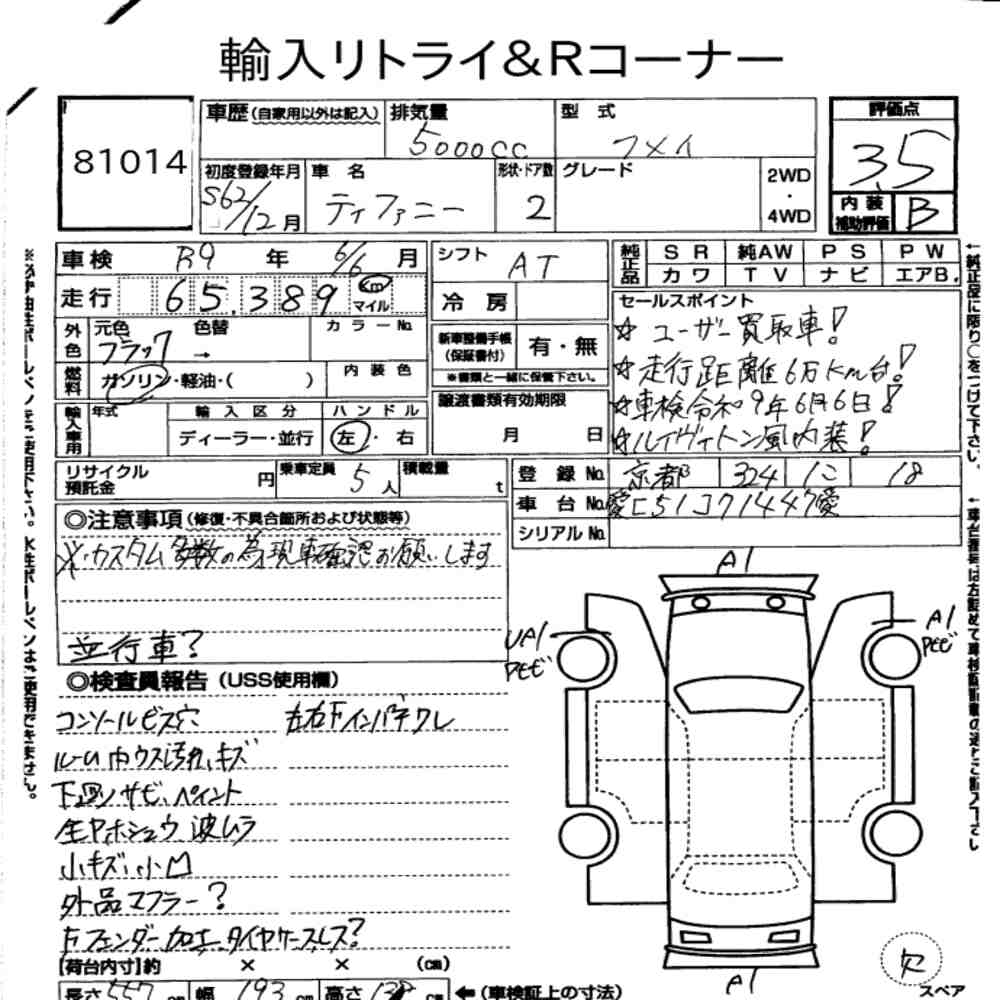 輸入リトライ&Rコーナー
81014
車歴(自家用以外は記入) 排気量 5000cc 型式 フメイ
評価点 3.5
初度登録年月 S62/12月 車名 ティファニー 形状・ドア数 2 グレード 2WD・4WD
内装補助評価 B
車検 R9年 6/6月 シフト AT
純正品 SR 純AW PS PW
カワ TV ナビ エアB.
走行 65,389 km マイル 冷房
セールスポイント
☆ユーザー買取車!
☆走行距離6万km台!
☆車検令和9年6月6日!
☆ルイヴィトン風内装!
外色 元色 ブラック → 色替 カラーNo.
新車整備手帳(保証書付) 有・無
※書類と一緒に保管下さい。
燃料 ガソリン・軽油・( ) 内装色
輸入車用 年式 輸入区分 ハンドル
ディーラー・並行 左・右
譲渡書類有効期限
月 日
リサイクル預託金 円 乗車定員 5人 積載量 t
登録No. 京都 324 18
車台No.
シリアルNo.
◎注意事項(修復・不具合箇所および状態等)
※カスタム多数の為現車確認お願いします
並行車?
◎検査員報告(USS使用欄)
コンソールビス穴 左右Fインパチワレ
ルーム内ウス汚れ、キズ
下廻りサビ、ペイント
全ヤホシュウ波ムラ
小キズ、小凹
外品マフラー?
Fフェンダー加エ、タイヤケースレス?
【荷台内寸】約 × × (cm)
長さ 557 cm 幅 193 cm 高さ cm ←(車検証上の寸法)
A1
UA1
A1
A1
欠
スペア
←純正品に限り○をつけて下さい。